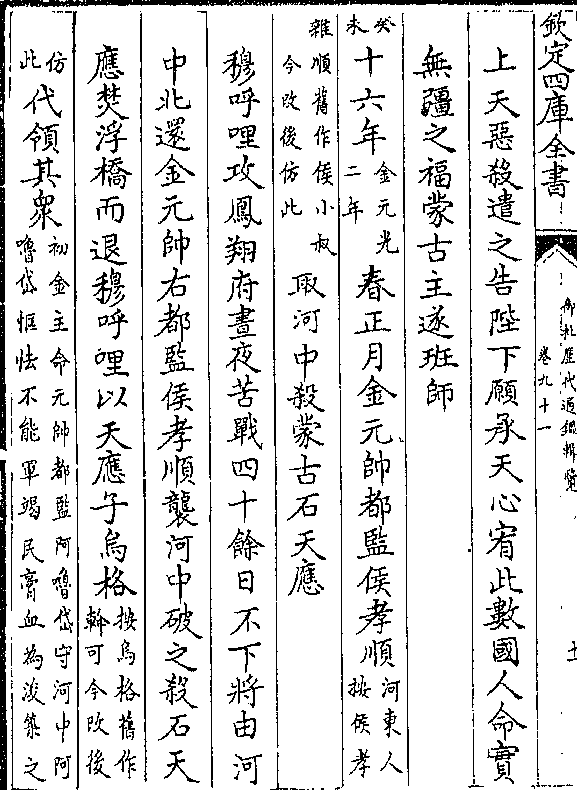 欽定四庫全書
御批歷代通鑑輯覽
卷九十一
十一
上天惡殺遣之告陛下願承天心宥此數國人命實
無疆之福蒙古主遂班師
癸未十六年金元光二年春正月金元帥都監侯孝順河東人按侯孝
雜順舊作侯小叔今改後仿此取河中殺蒙古石天應
穆呼哩攻鳳翔府晝夜苦戰四十餘日不下將由河
中北還金元帥右都監侯孝順襲河中破之殺石天
應焚浮橋而退穆呼哩以天應子烏格按烏格舊作斡可今改後
仿此代領其衆初金主命元帥都監阿嚕岱守河中阿嚕岱恇怯不能軍竭民膏血為浚築之